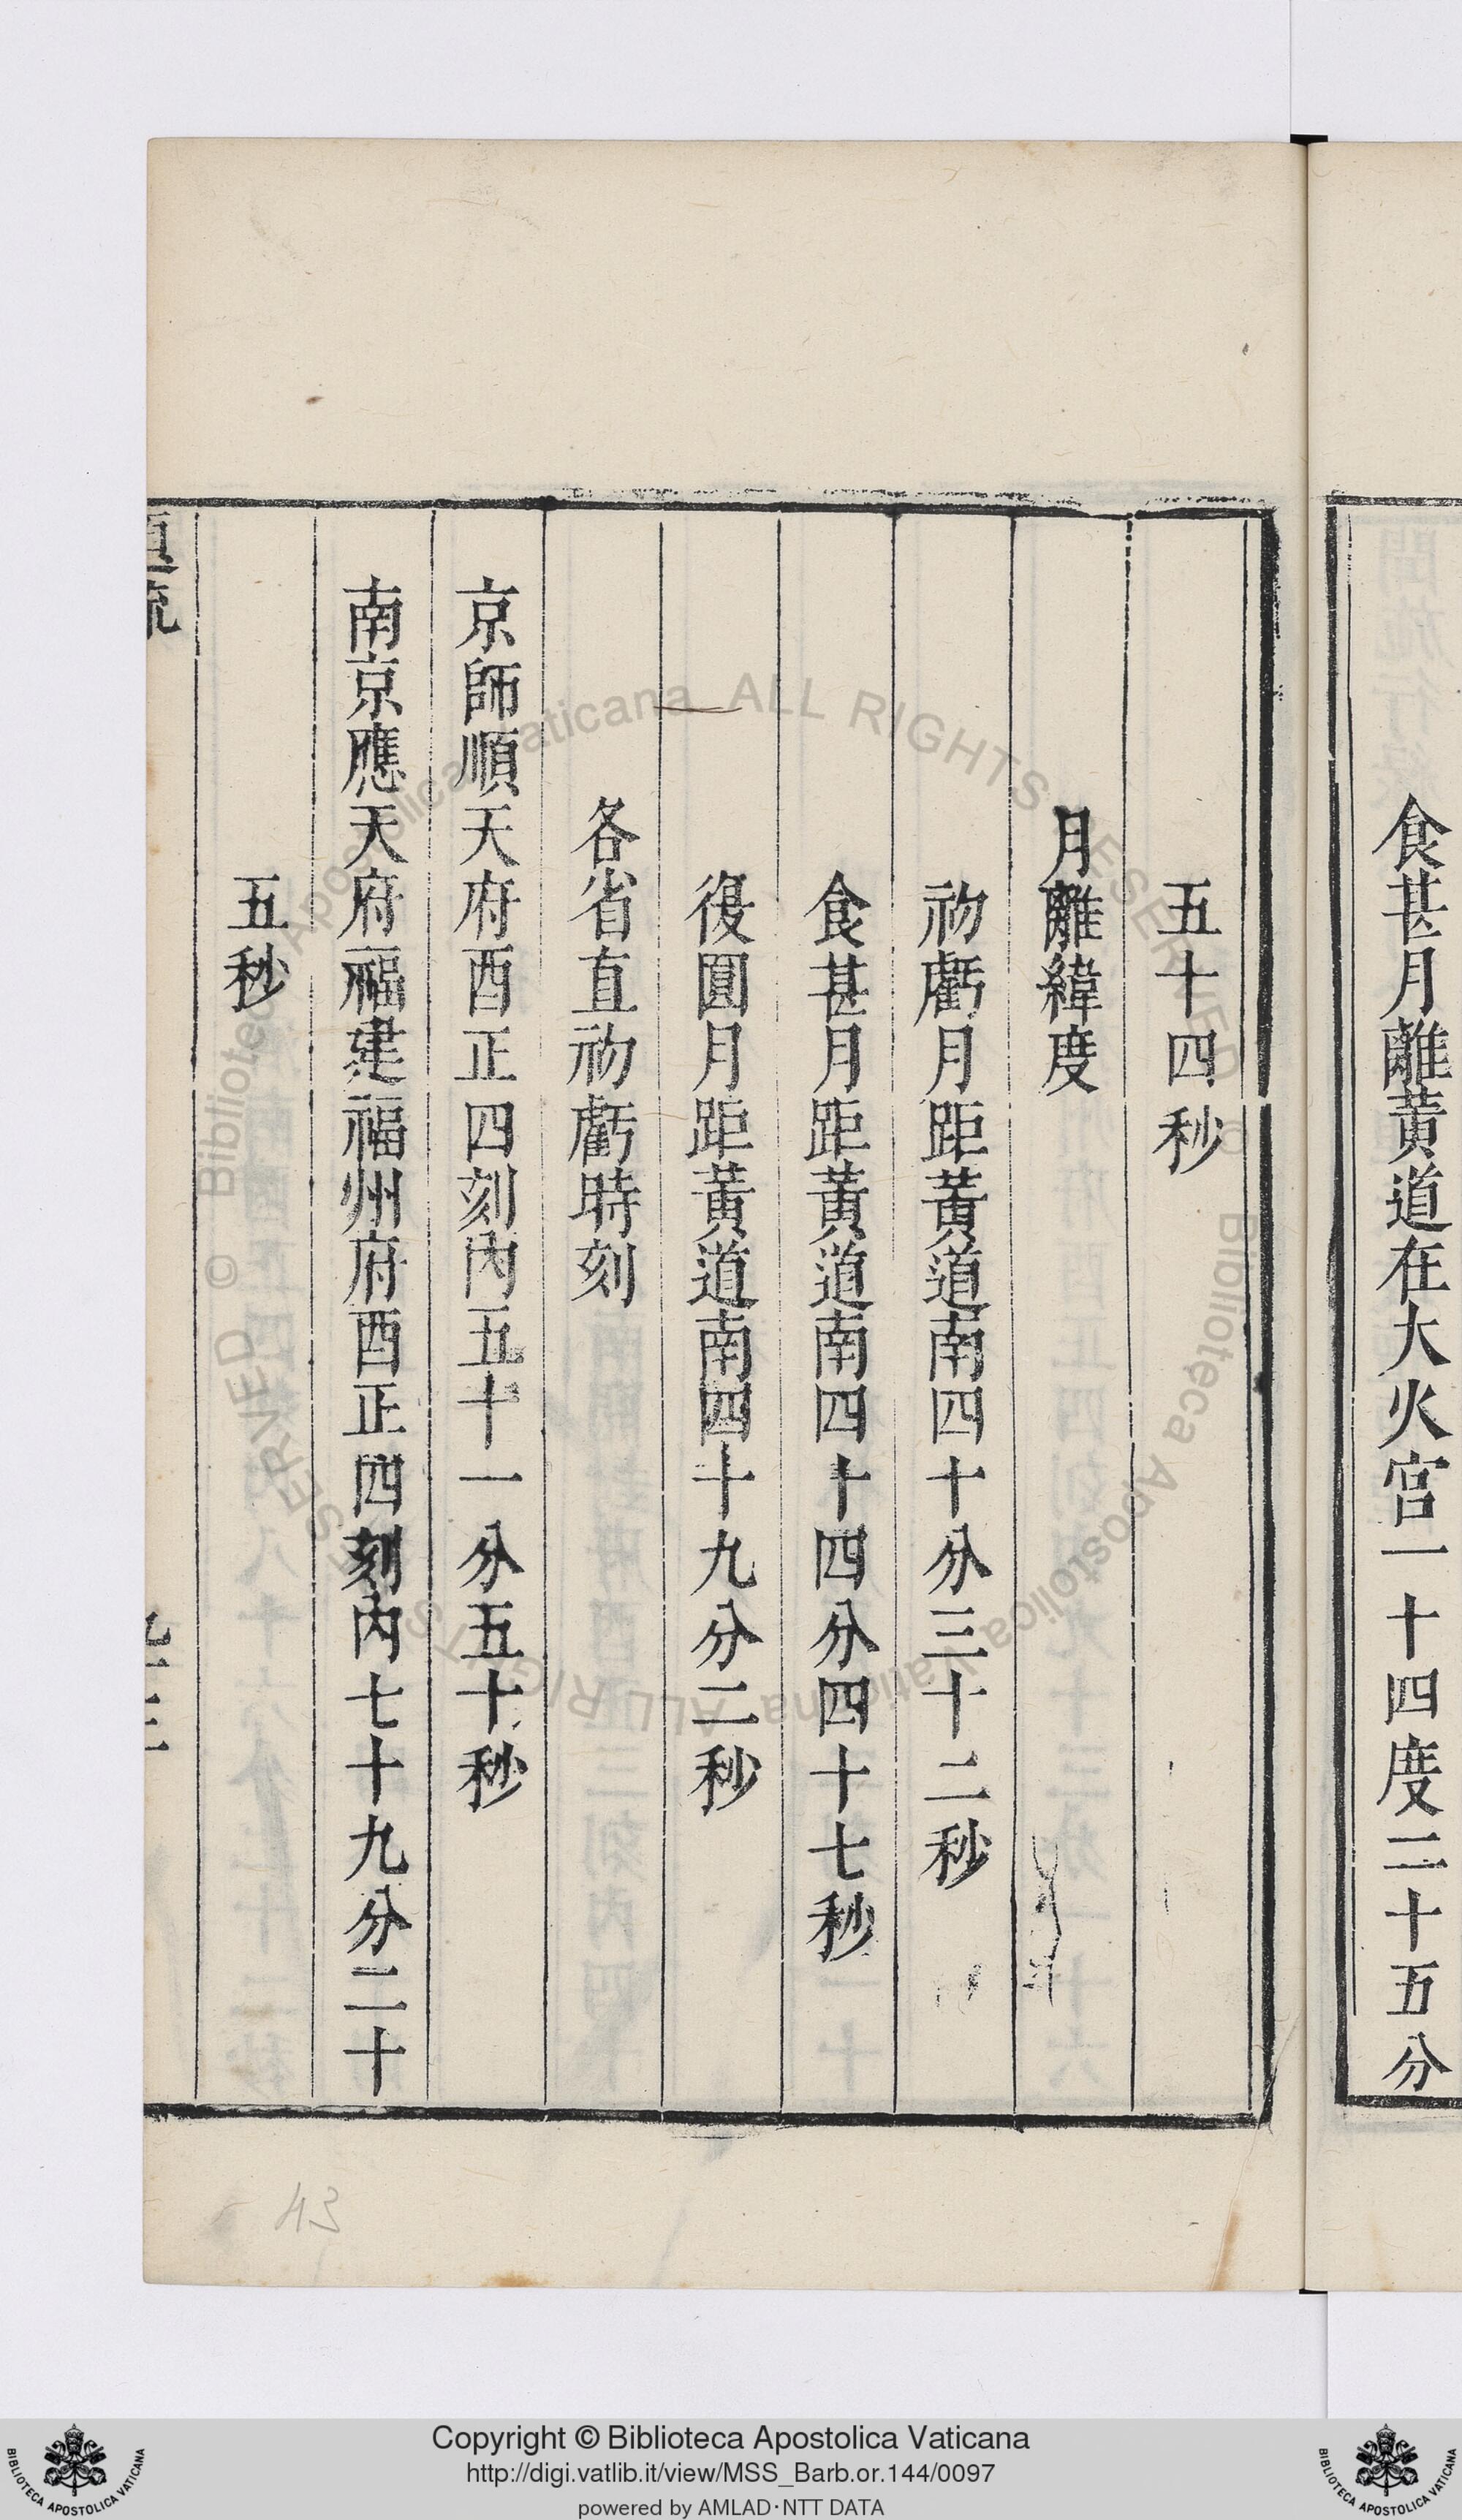 食甚月離黃道在大火宮一十四度二十五分
五十四秒
月離緯度
初虧月距黃道南四十分三十二秒
食甚月距黃道南四十四分四十七秒
復圓月距黃道南四十九分二秒
各省直初虧時刻
京師順天府酉正四刻內五十一分五十秒
南京應天府福建福州府酉正四刻內七十九分二十
五秒
43
Copyright © Biblioteca Apostolica Vaticana
http://digi.vatlib.it/view/MSS_Barb.or.144/0097
powered by AMLAD·NTT DATA